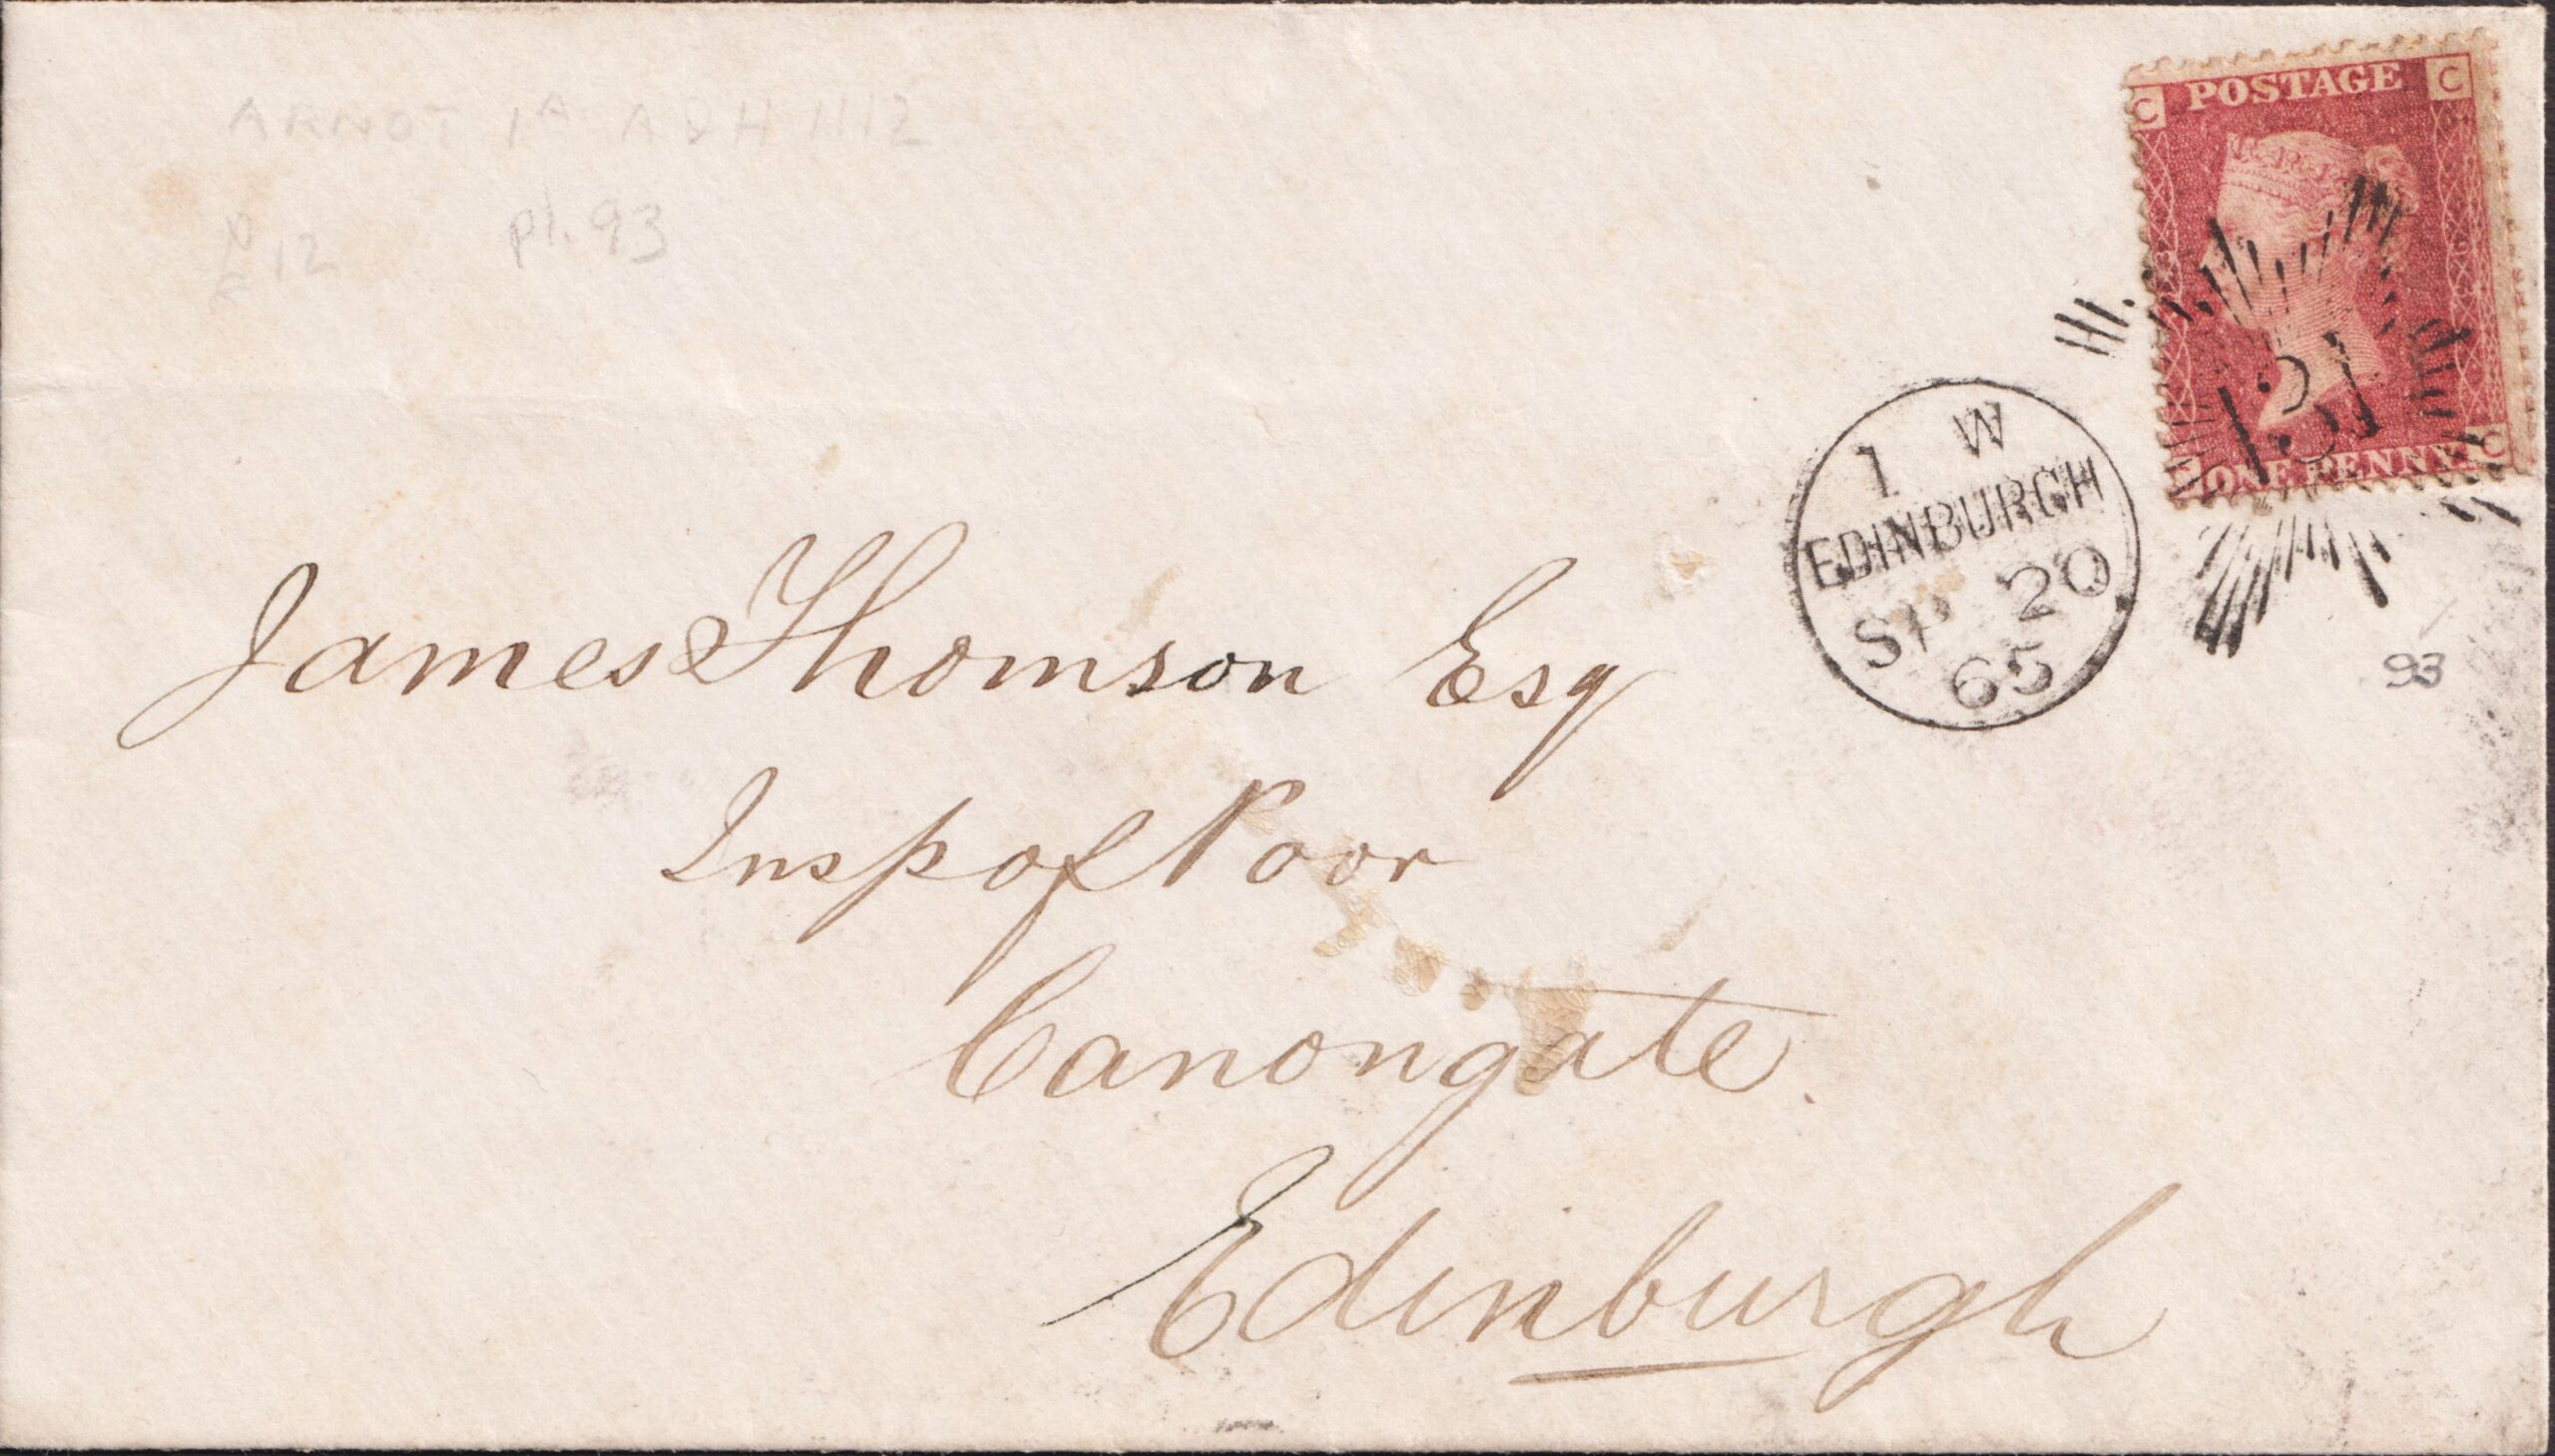 ARNOT 1A ADH 1112
12 pl. 93
C POSTAGE C
131
ONE PENNY C
1 W
EDINBURGH
SP 20
65
93
James Thomson Esq
Insp of Poor
Canongate.
Edinburgh